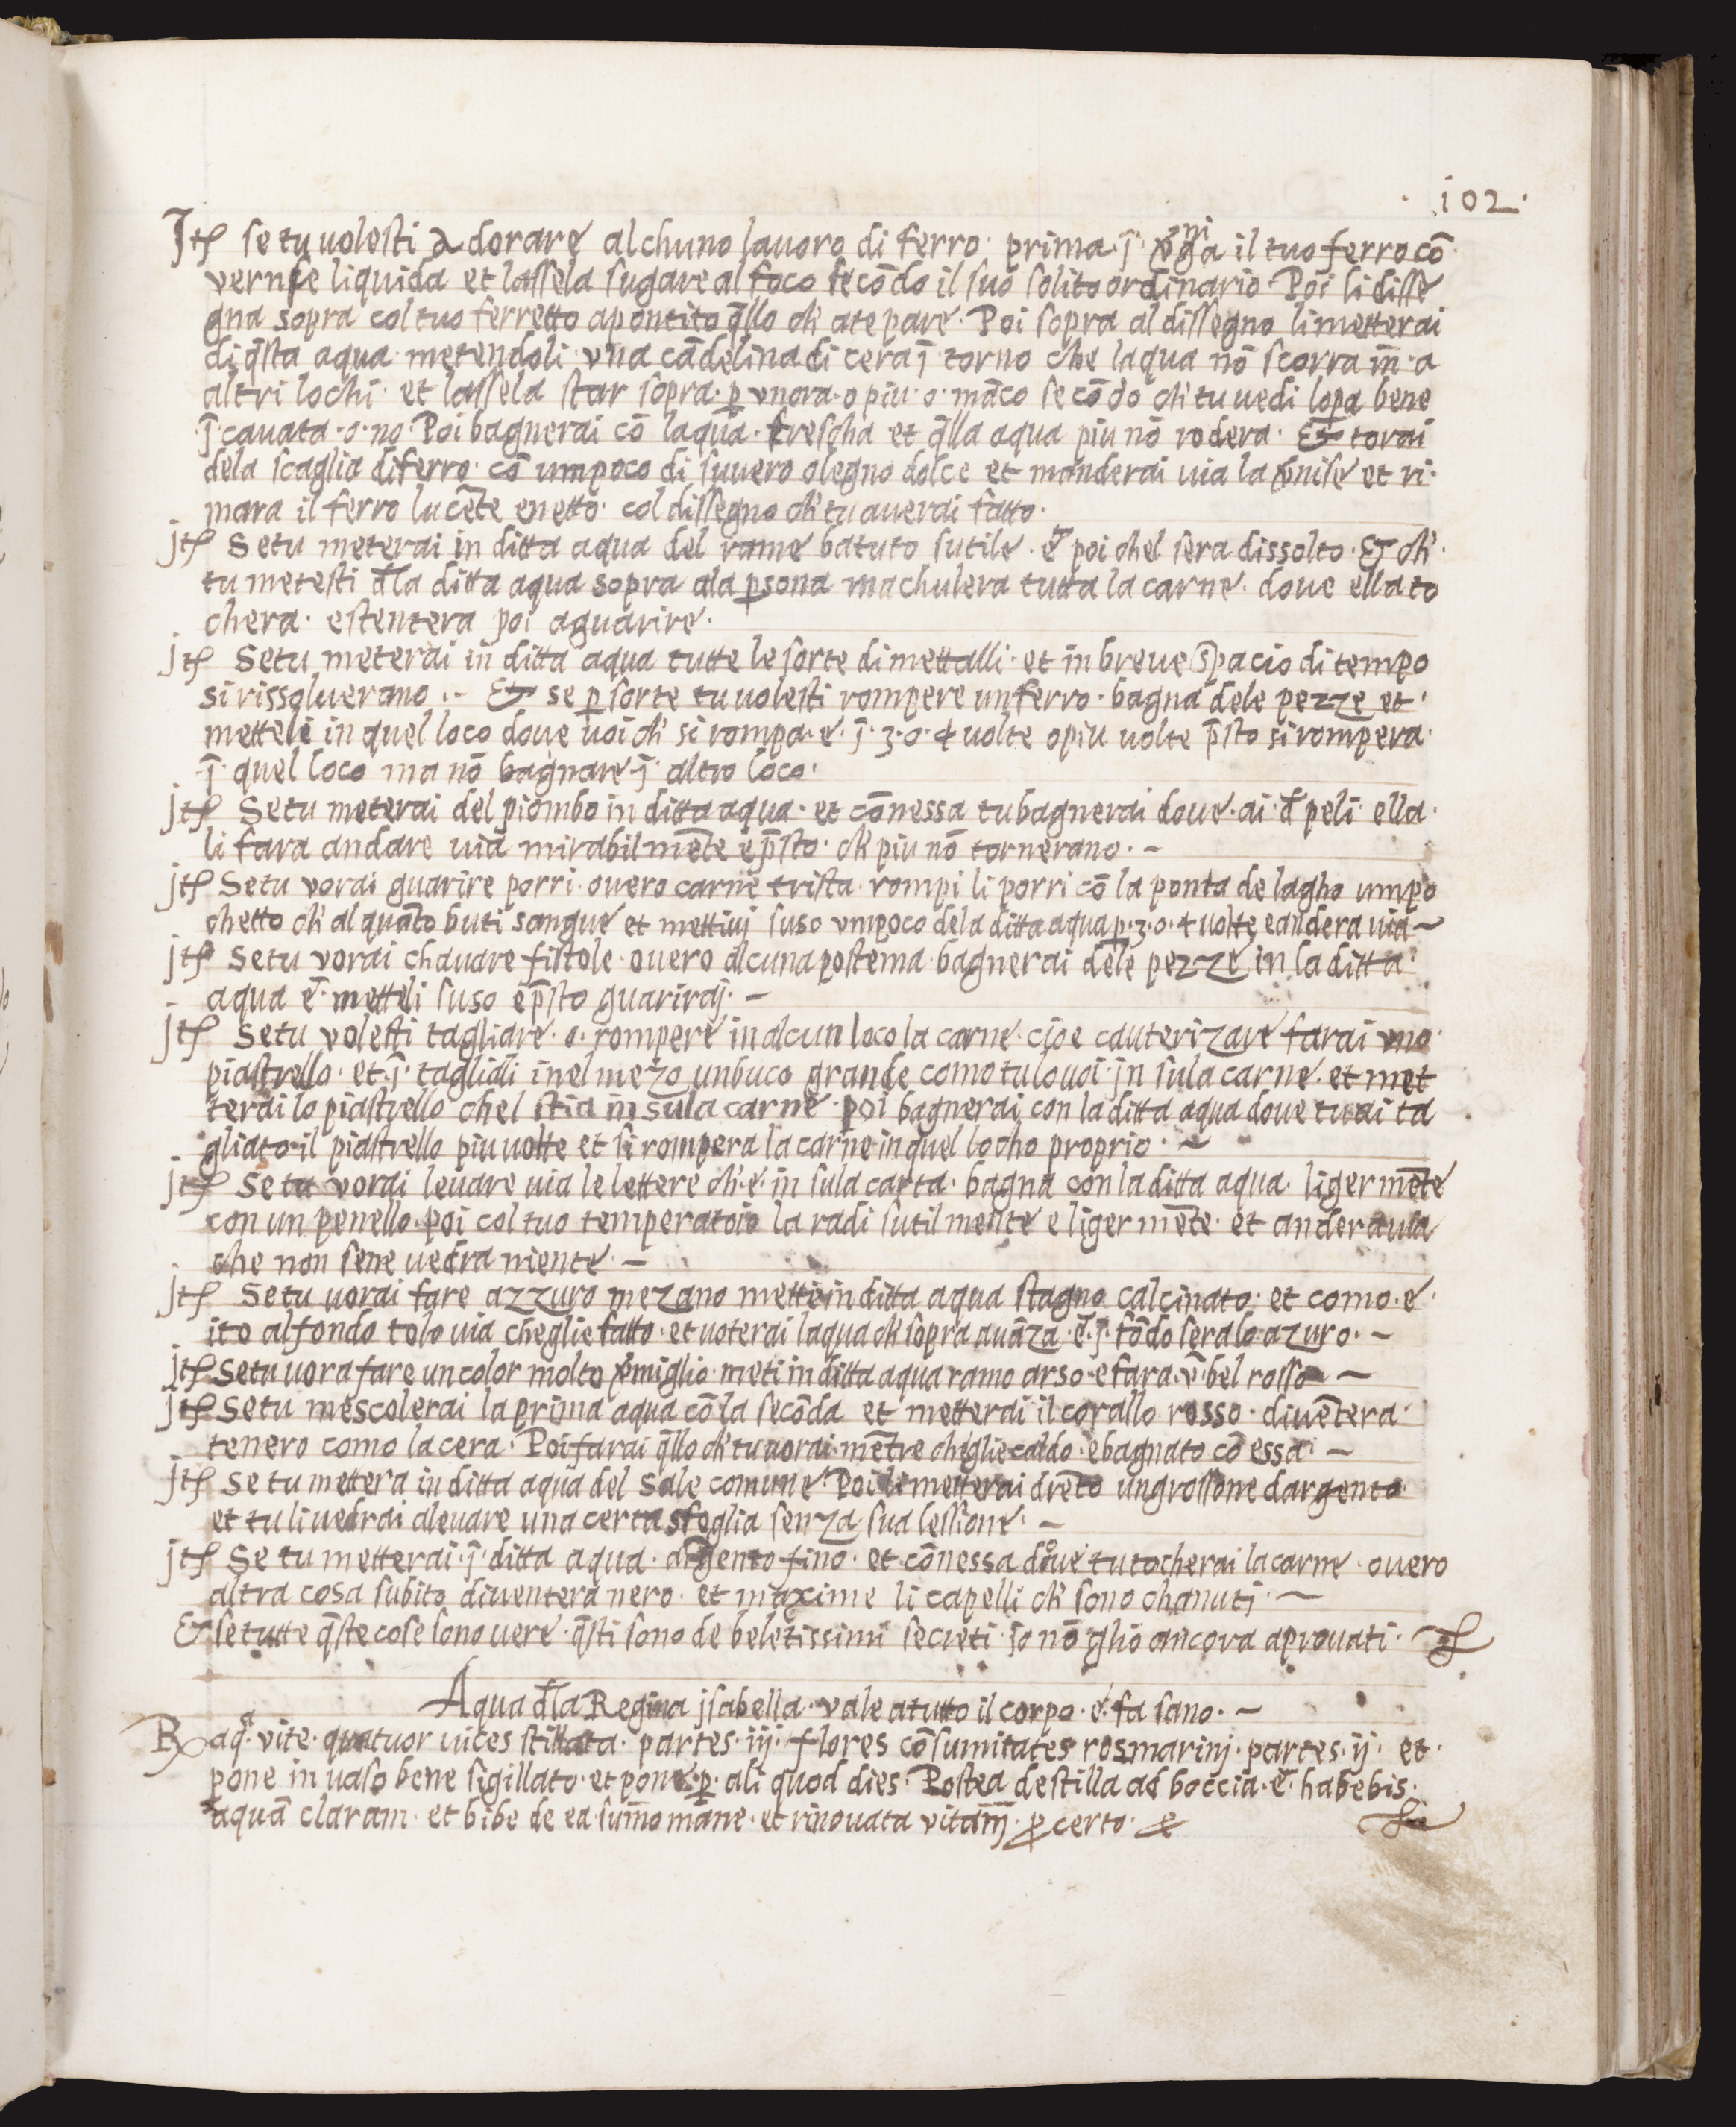 .102.
Jtꝭ se tu uolesti adorare alchuno lauoro di ferro· prima·j̄· v̄niga il tuo ferro cō
vernise liquida et lassela sugare al foco secōdo il suo solito ordinario· Poi li disse
gna sopra col tuo ferretto apontito q̄llo ch' ate pare· Poi sopra al dissegno li metterai
di q̄sta aqua· metendoli· vna cādelina di cera j̄· torno che laqua nō scorra m̄·a
altri lochi· et lassela star sopra·ꝑ vnora·o piu·o·māco secōdo ch' tu uedi lopa bene
j̄·cauata·o·no· Poi bagnerai cō laqua·frescha et q̄lla aqua piu nō rodera· & torai
dela scaglia di ferro· cō umpoco di suuero o legno dolce et manderai uia la v̄nise et ri·
mara il ferro lucēte enetto· col dissegno ch' tu auerai fatto·
jtꝭ Setu meterai in ditta aqua del rame batuto sutile· ē poi chel sera dissolto· & ch'·
tu metesti d̄la ditta aqua sopra ala ꝑsona machulera tutta la carne· doue ella to
chera· e stentera poi aguarire·
jtꝭ Setu meterai in ditta aqua tutte le sorte di mettalli· et in breue spacio di tempo
si rissoluerano .- & se ꝑ sorte tu uolesti rompere un ferro· bagna dele pezze et·
metteli in quel loco doue uoi ch' si rompa·e·j̄·3·o·4 uolte o piu uolte p̄sto si rompera·
j̄· quel loco ma nō bagnare·j̄· altro loco·
jtꝭ Setu meterai del piombo in ditta aqua· et cōnessa tu bagnerai doue·ai·d̄ peli· ella·
li fara andare uia mirabilmēte e p̄sto· ch' piu nō tornerano·~
jtꝭ Setu vorai guarire porri· ouero carne trista· rompi li porri cō la ponta de lagho umpo
chetto ch' alquāto buti sangue et mettiuj suso vmpoco dela ditta aqua ꝑ·3·o·4 uolte e andera uia~
jtꝭ Setu vorai chauare fistole· ouero alcuna postema· bagnerai dele pezze in la ditta·
aqua ē· metteli suso e p̄sto guariraj·~
jtꝭ Setu volesti tagliare·o·rompere in alcun loco la carne· cioe cauterizare farai vno·
piastrello· et·j̄· tagliali inel mezo un buco grande como tu lo uoi· jn sula carne· et met
terai lo piastrello chel stia in sula carne· poi bagnerai con la ditta aqua doue tu ai ta
gliato il piastrello piu uolte et si rompera la carne in quel locho proprio·~
jtꝭ Setu vorai leuare uia le lettere ch'·e·in sula carta· bagna con la ditta aqua· ligermēte
con un penello· poi col tuo temperatoio la radi sutilmente e ligermēte· et andera uia
che non sene uedra niente·~
jtꝭ Setu uorai fare azzuro mezano mette in ditta aqua stagno calcinato· et como·e·
ito al fondo tolo uia che glie fatto· et uoterai laqua ch' sopra auāza·ē·j̄· fōdo sera lo azuro·~
jtꝭ Setu uora fare un color molto v̄miglio· meti in ditta aqua ramo arso· e fara·v̄·bel rosso~
jtꝭ Setu mescolerai la prima aqua cō la secōda et metterai il corallo rosso· diuētera·
tenero como la cera· Poi farai q̄llo ch' tu uorai· mētre ch' glie caldo· e bagnato cō essa·~
jtꝭ Se tu mettera in ditta aqua del sale comune· Poi li metterai drēto un grossone dargento
et tu li uedrai aleuare una certa sfoglia senza sua lessione·~
jtꝭ Se tu metterai·j̄· ditta aqua· argento fino· et cōnessa doue tu tocherai la carne· ouero
altra cosa subito diuentera nero· et maxime li capelli ch' sono chanutj·~
& se tutte q̄ste cose sono uere· q̄sti sono de beletissimi secreti· jo nō gho ancora aprouati·
Aqua d̄la Regina jsabella· vale a tutto il corpo·e·fa sano·~
℞ aq̄ᵃ· vite· quatuor uices stillata· partes·iij· flores cōsumitates rosmarinj· partes·ij· et·
pone in uaso bene sigillato· et pone·ꝑ·ali quod dies· Postea destilla ad boccia·ē·habebis·
aquā claram· et bibe de ea sum̄o māne· et rinouata vitam̄· ꝓ certo·